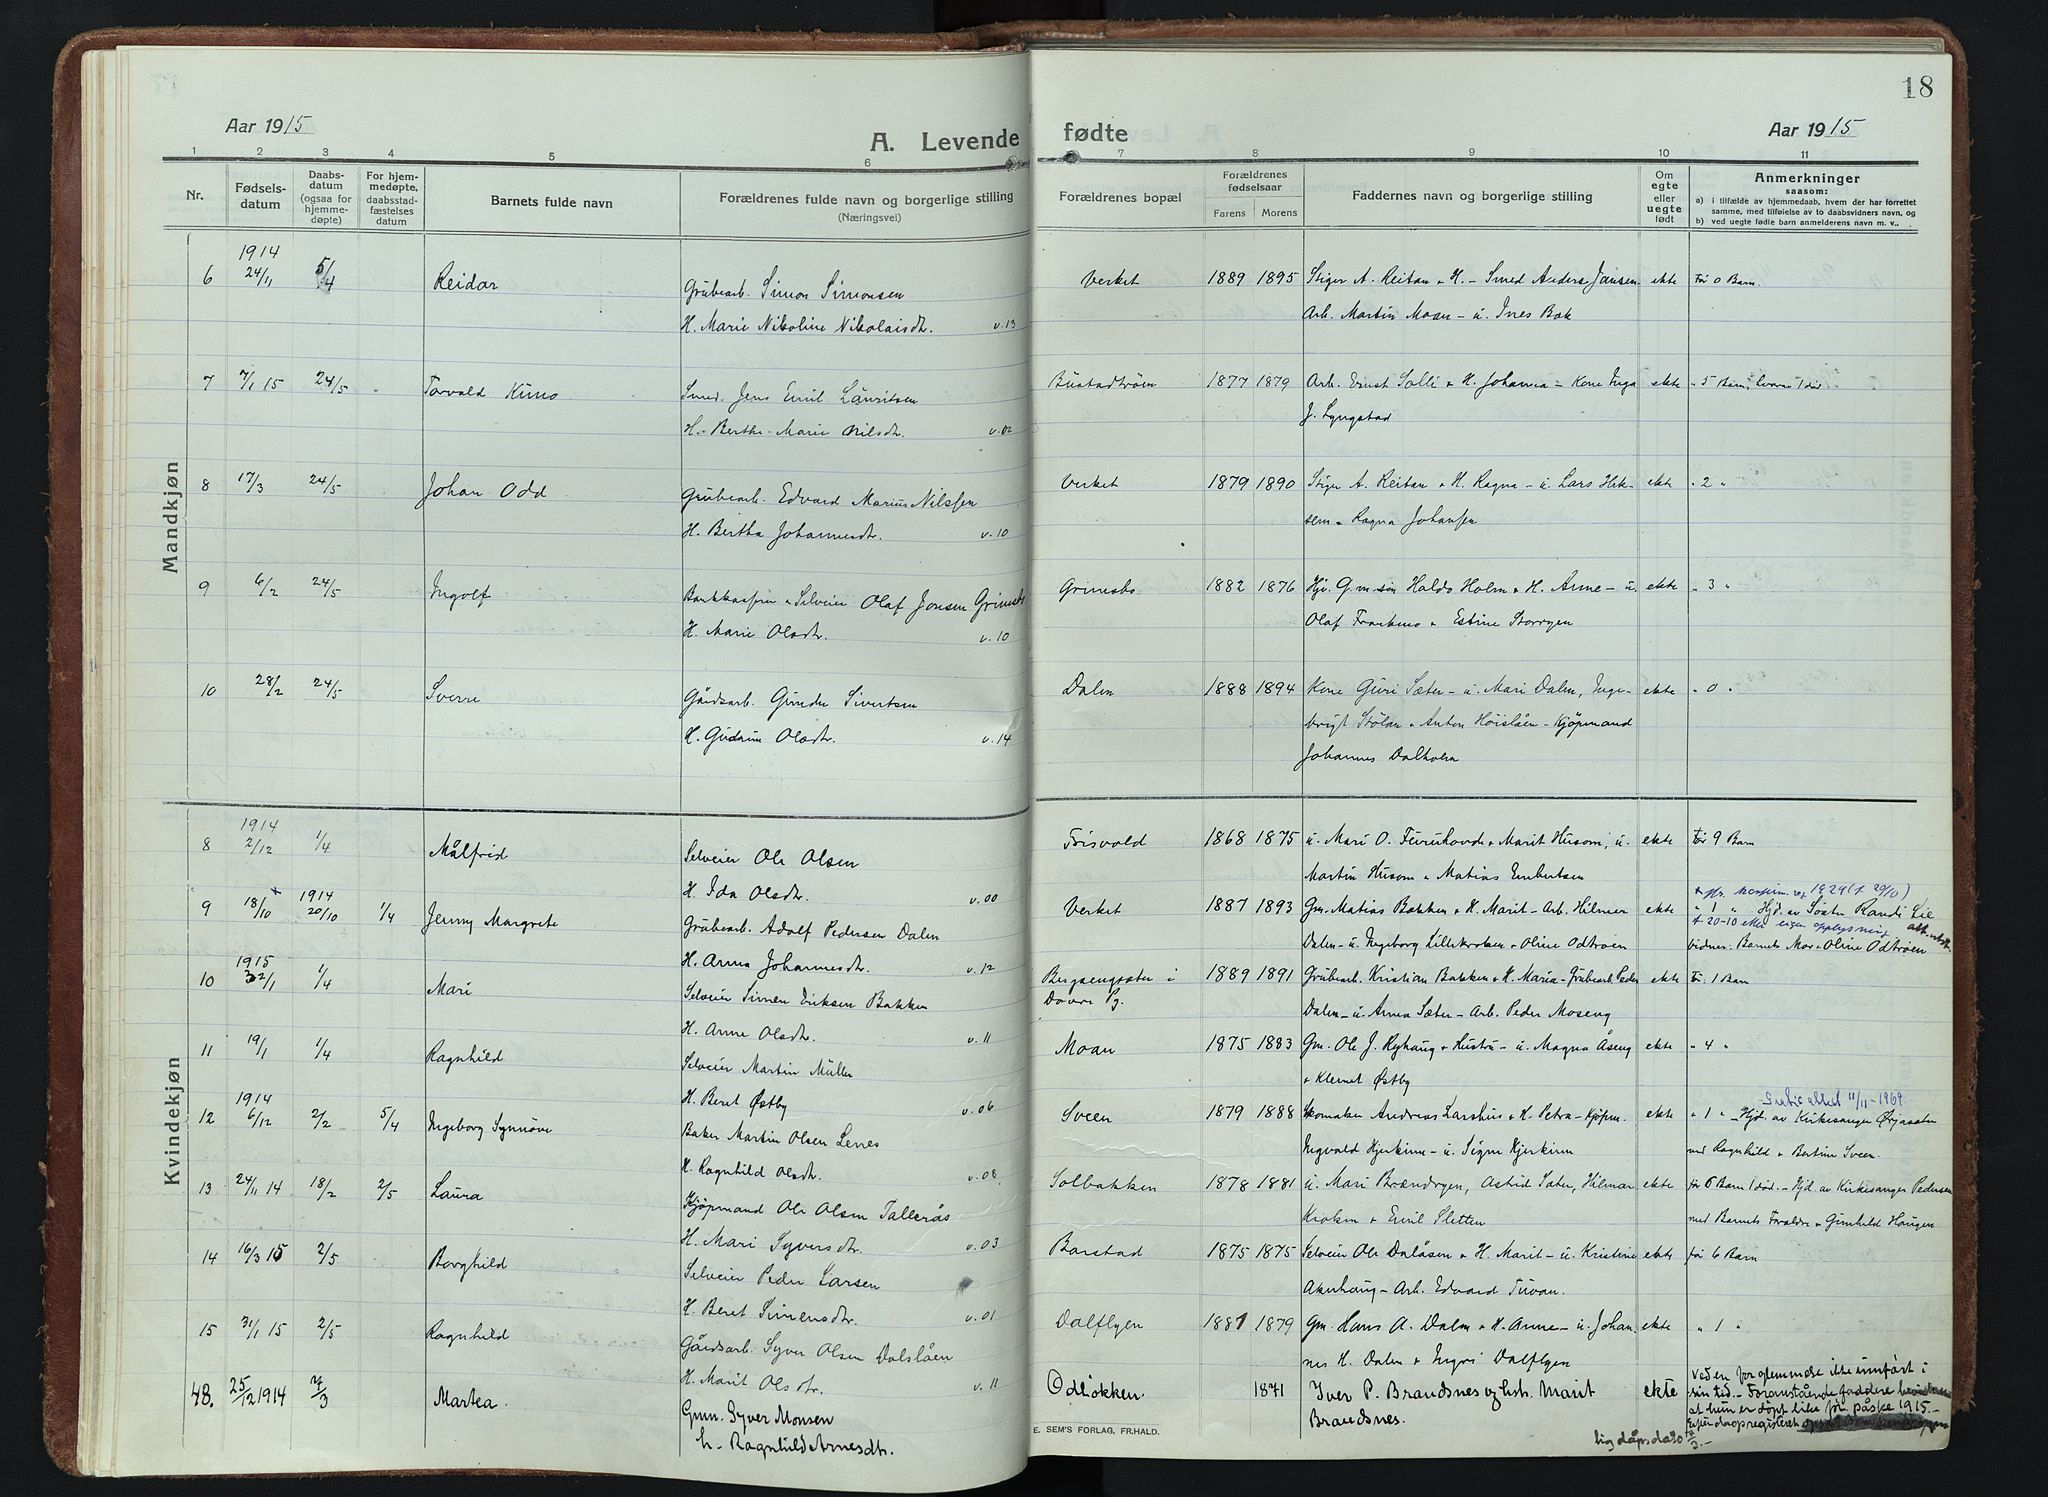 18
Aar 1915
A. Levende fødte
Aar 1915
1 2 3 4 5 6 7 8 9 10 11
Nr. Fødselsdatum Daabsdatum (ogsaa for hjemmedøpte) For hjemmedøpte, daabsstadfæstelses datum Barnets fulde navn Forældrenes fulde navn og borgerlige stilling (Næringsvei) Forældrenes bopæl Forældrenes fødselsaar Farens Morens Faddernes navn og borgerlige stilling Om egte eller uegte født Anmerkninger saasom:
a) i tilfælde av hjemmedaab, hvem der har forrettet samme, med tilføielse av to daabsvidners navn, og
b) ved uegte fødte barn anmelderens navn m. v..
Mandkjøn
1914
6 24/11 5/4 Reidar Grubearb. Simon Simonsen Verket 1889 1895 Stiger A. Reitan + H. – Smed Anders Jansen ekte Før 0 Barn.
H. Marie Nikoline Nikolaisdtr. v. 13 Arb. Martin Moan – u. Ines Bak
7 7/1 15 24/5 Torvald Kuno Smed. Jens Emil Lauritsen Bustadtrøen 1877 1879 Arb. Ernst Solli + H. Johanna – Kone Inga ekte " 5 Barn, hvorav 1 død
H. Berthe Marie Nilsdtr. v. 02 J. Lyngstad
8 17/3 24/5 Johan Odd Grubearb. Edvard Marius Nilssen Verket 1879 1890 Stiger A. Reitan + H. Ragna – u. Lars ekte " 2 "
H. Bertha Johannesdtr. v. 10 sen + Ragna Johansen
9 6/2 24/5 Ingolf Bankkasserer + Selveier Olaf Jonsen Grimsbo Grimsbo 1882 1876 Gmsøn Haldo Holm + H. Anne – u. ekte " 3 "
H. Marie Olsdtr. v. 10 Olaf Frankmo + Estine Storryen
10 28/2 24/5 Sverre Gårdsarb. Gunder Sivertsen Dalen 1888 1894 Kone Guri Sæter – u. Mari Dalen, Inge- ekte " 0 "
H. Gudrun Olsdtr. v. 14 brigt Stølan + Anton Høislåen – Kjøpmand
Johannes Dalholm
Kvindekjøn
1914
8 2/12 1/4 Målfrid Selveier Ole Olsen Frisvold 1868 1875 u. Mari O. Furuhovde + Marit Husom, u. ekte Før 9 Barn
H. Ida Olsdtr. v. 00 Martin Husom + Matias Embertsen
9 18/10 1914 20/10 1/4 Jenny Margrete Grubearb. Adolf Pedersen Dalen Verket 1887 1893 Gm. Matias Bakken + H. Marit – Arb. Hilmer ekte " 1 " Hjd. av Søster Randi Lie
H. Anna Johannesdtr. v. 12 Dalen – u. Ingeborg Lillekroken + Oline Odtrøen
20-10 etter egen opplysning
vidner: Barnets Mor + Oline Odtrøen
1915
10 2/1 1/4 Mari Selveier Simen Eriksen Bakken i Dovre Pg. 1889 1891 Grubearb. Kristian Bakken + H. Maria – Grubearb. Peder ekte Før 1 Barn
H. Anne Olsdtr. v. 11 Dalen – u. Anna Sæter – Arb. Peder Moseng
11 19/1 1/4 Ragnhild Selveier Martin Müller Moan 1875 1883 Gm. Ole J. Ryhaug + Hustru – u. Magna Åseng ekte " 4 "
H. Beret Østby v. 06 + Klemet Østby
1914
12 6/12 2/2 5/4 Ingeborg Synnøve Baker Martin Olsen Lenes Sveen 1879 1888 Skomaker Andreas Larshus + H. Petra – Kjøpm. ekte " 1 " – Hjd. av Kirkesanger
11/11-1969.
H. Ragnhild Olsdtr. v. 08 Ingvald Hjerkinn – u. Signe Hjerkinn med Ragnhild + Bertine Sveen.
13 24/11 14 18/2 2/5 Laura Kjøpmand Ole Olsen Tallerås Solbakken 1878 1881 u. Mari Brændryen, Astrid Sæter, Hilmar ekte før 6 Barn 1 død. – Hjd. av Kirkesanger Pedersen
H. Mari Syversdtr. v. 03 Kroken + Emil Sletten med Barnets Forældre + Gunhild Haugen
14 16/3 15 2/5 Borghild Selveier Peder Larsen Barstad 1875 1875 Selveier Ole Dalåsen + H. Marit – u. Kristine ekte før 6 Barn
H. Beret Simensdtr. v. 01 Akerhaug – Arb. Edvard Turan.
15 31/1 15 2/5 Ragnhild Gårdsarb. Syver Olsen Dalslåen Dalflyen 1881 1879 Gm. Hans A. Dalen + H. Anne – u. Johan- ekte " 1 "
H. Marit Olsdtr. v. 11 nes H. Dalen + Ingri Dalflyen
48. 25/12 1914 7/3 Martea. Gmn. Syver Monsen Odløkken 1871 Iver P. Brandsnes og Marit ekte Ved en forglemmelse ikke innført i
h. Ragnhild Arnesdtr. Brandsnes. sin tid. – Foranstående faddere
at hun er døpt like før påske 1915. –
Efter daapsregisteret
dåpsdato 7/3. –
E. SEM'S FORLAG, FR.HALD.